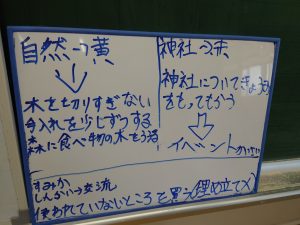 自然→黄
木を切りすぎない
手入れを少しずつする
森に食べ物の木をうえる
神社→赤
神社についてきょうみ
をもってもらう
イベント
すみか
しんかい→交流
使われていないところを買う(埋め立て×)